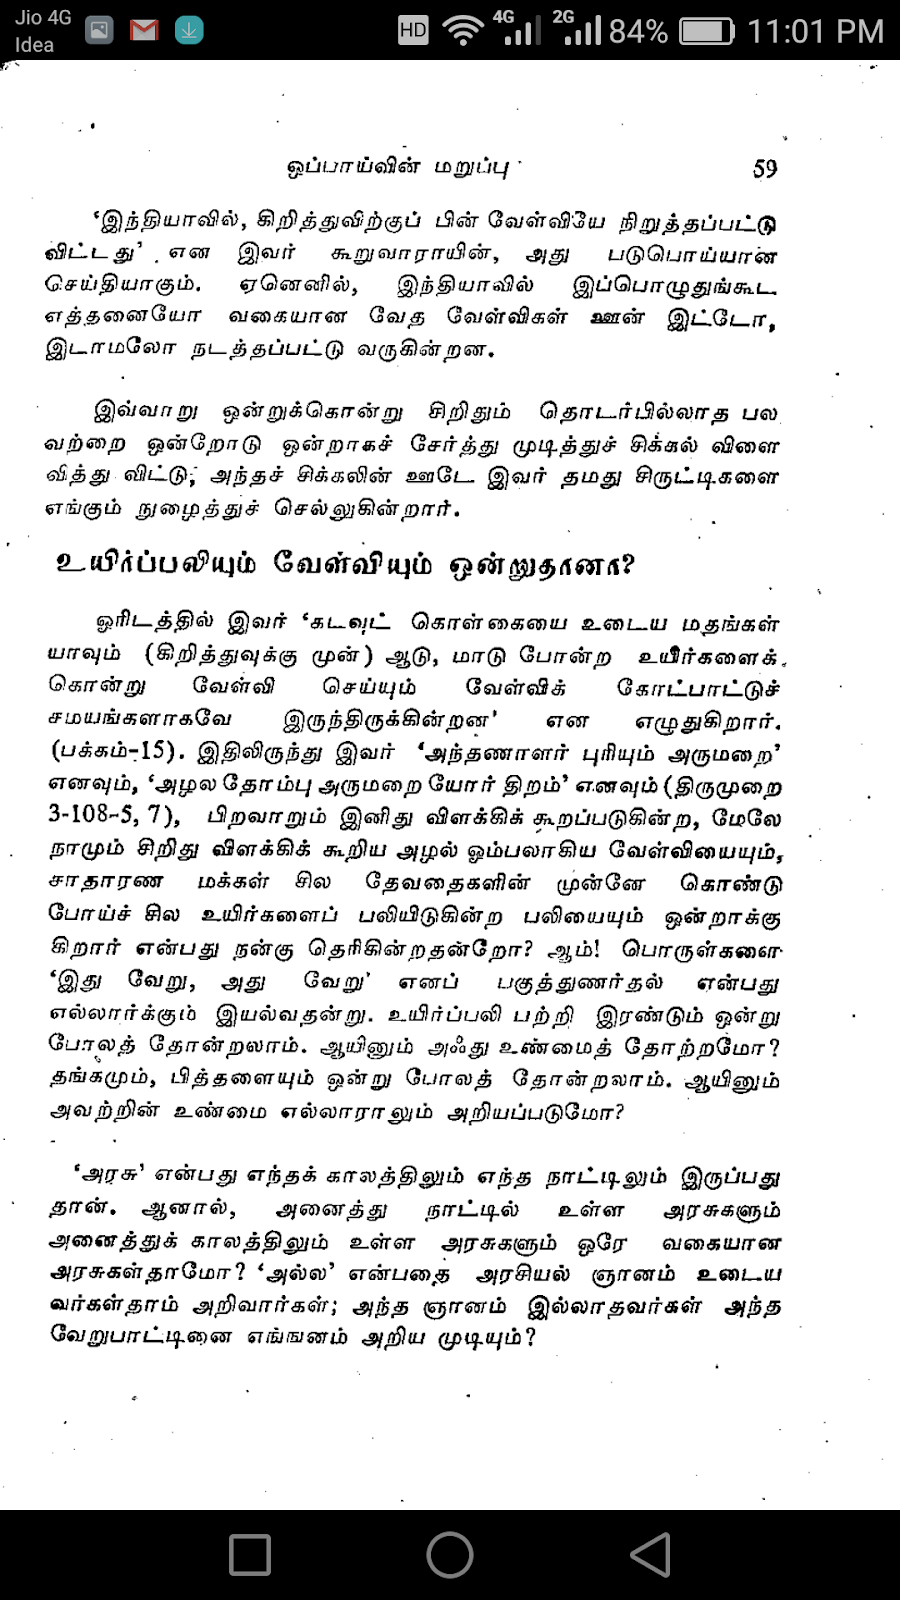 Jio 4G
Idea
HD 4G 2G 84% 11:01 PM
ஒப்பாய்வின் மறுப்பு 59
‘இந்தியாவில், கிறித்துவிற்குப் பின் வேள்வியே நிறுத்தப்பட்டு
விட்டது’ என இவர் கூறுவாராயின், அது படுபொய்யான
செய்தியாகும். ஏனெனில், இந்தியாவில் இப்பொழுதுங்கூட
எத்தனையோ வகையான வேத வேள்விகள் ஊன் இட்டோ,
இடாமலோ நடத்தப்பட்டு வருகின்றன.
இவ்வாறு ஒன்றுக்கொன்று சிறிதும் தொடர்பில்லாத பல
வற்றை ஒன்றோடு ஒன்றாகச் சேர்த்து முடித்துச் சிக்கல் விளை
வித்து விட்டு, அந்தச் சிக்கலின் ஊடே இவர் தமது சிருட்டிகளை
எங்கும் நுழைத்துச் செல்லுகின்றார்.
உயிர்ப்பலியும் வேள்வியும் ஒன்றுதானா?
ஓரிடத்தில் இவர் ‘கடவுட் கொள்கையை உடைய மதங்கள்
யாவும் (கிறித்துவுக்கு முன்) ஆடு, மாடு போன்ற உயிர்களைக்
கொன்று வேள்வி செய்யும் வேள்விக் கோட்பாட்டுச்
சமயங்களாகவே இருந்திருக்கின்றன’ என எழுதுகிறார்.
(பக்கம்-15). இதிலிருந்து இவர் ‘அந்தணாளர் புரியும் அருமறை’
எனவும், ‘அழல தோம்பு அருமறை யோர் திறம்’ எனவும் (திருமுறை
3-108-5, 7), பிறவாறும் இனிது விளக்கிக் கூறப்படுகின்ற, மேலே
நாமும் சிறிது விளக்கிக் கூறிய அழல் ஓம்பலாகிய வேள்வியையும்,
சாதாரண மக்கள் சில தேவதைகளின் முன்னே கொண்டு
போய்ச் சில உயிர்களைப் பலியிடுகின்ற பலியையும் ஒன்றாக்கு
கிறார் என்பது நன்கு தெரிகின்றதன்றோ? ஆம்! பொருள்களை
‘இது வேறு, அது வேறு’ எனப் பகுத்துணர்தல் என்பது
எல்லார்க்கும் இயல்வதன்று. உயிர்ப்பலி பற்றி இரண்டும் ஒன்று
போலத் தோன்றலாம். ஆயினும் அஃது உண்மைத் தோற்றமோ?
தங்கமும், பித்தளையும் ஒன்று போலத் தோன்றலாம். ஆயினும்
அவற்றின் உண்மை எல்லாராலும் அறியப்படுமோ?
‘அரசு’ என்பது எந்தக் காலத்திலும் எந்த நாட்டிலும் இருப்பது
தான். ஆனால், அனைத்து நாட்டில் உள்ள அரசுகளும்
அனைத்துக் காலத்திலும் உள்ள அரசுகளும் ஒரே வகையான
அரசுகள்தாமோ? ‘அல்ல’ என்பதை அரசியல் ஞானம் உடைய
வர்கள்தாம் அறிவார்கள்; அந்த ஞானம் இல்லாதவர்கள் அந்த
வேறுபாட்டினை எங்ஙனம் அறிய முடியும்?